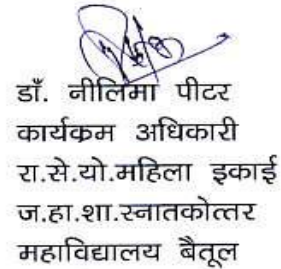 डॉ. नीलिमा पीटर
कार्यक्रम अधिकारी
रा.से.यो.महिला इकाई
ज.हा.शा.स्नातकोत्तर
महाविद्यालय बैतूल